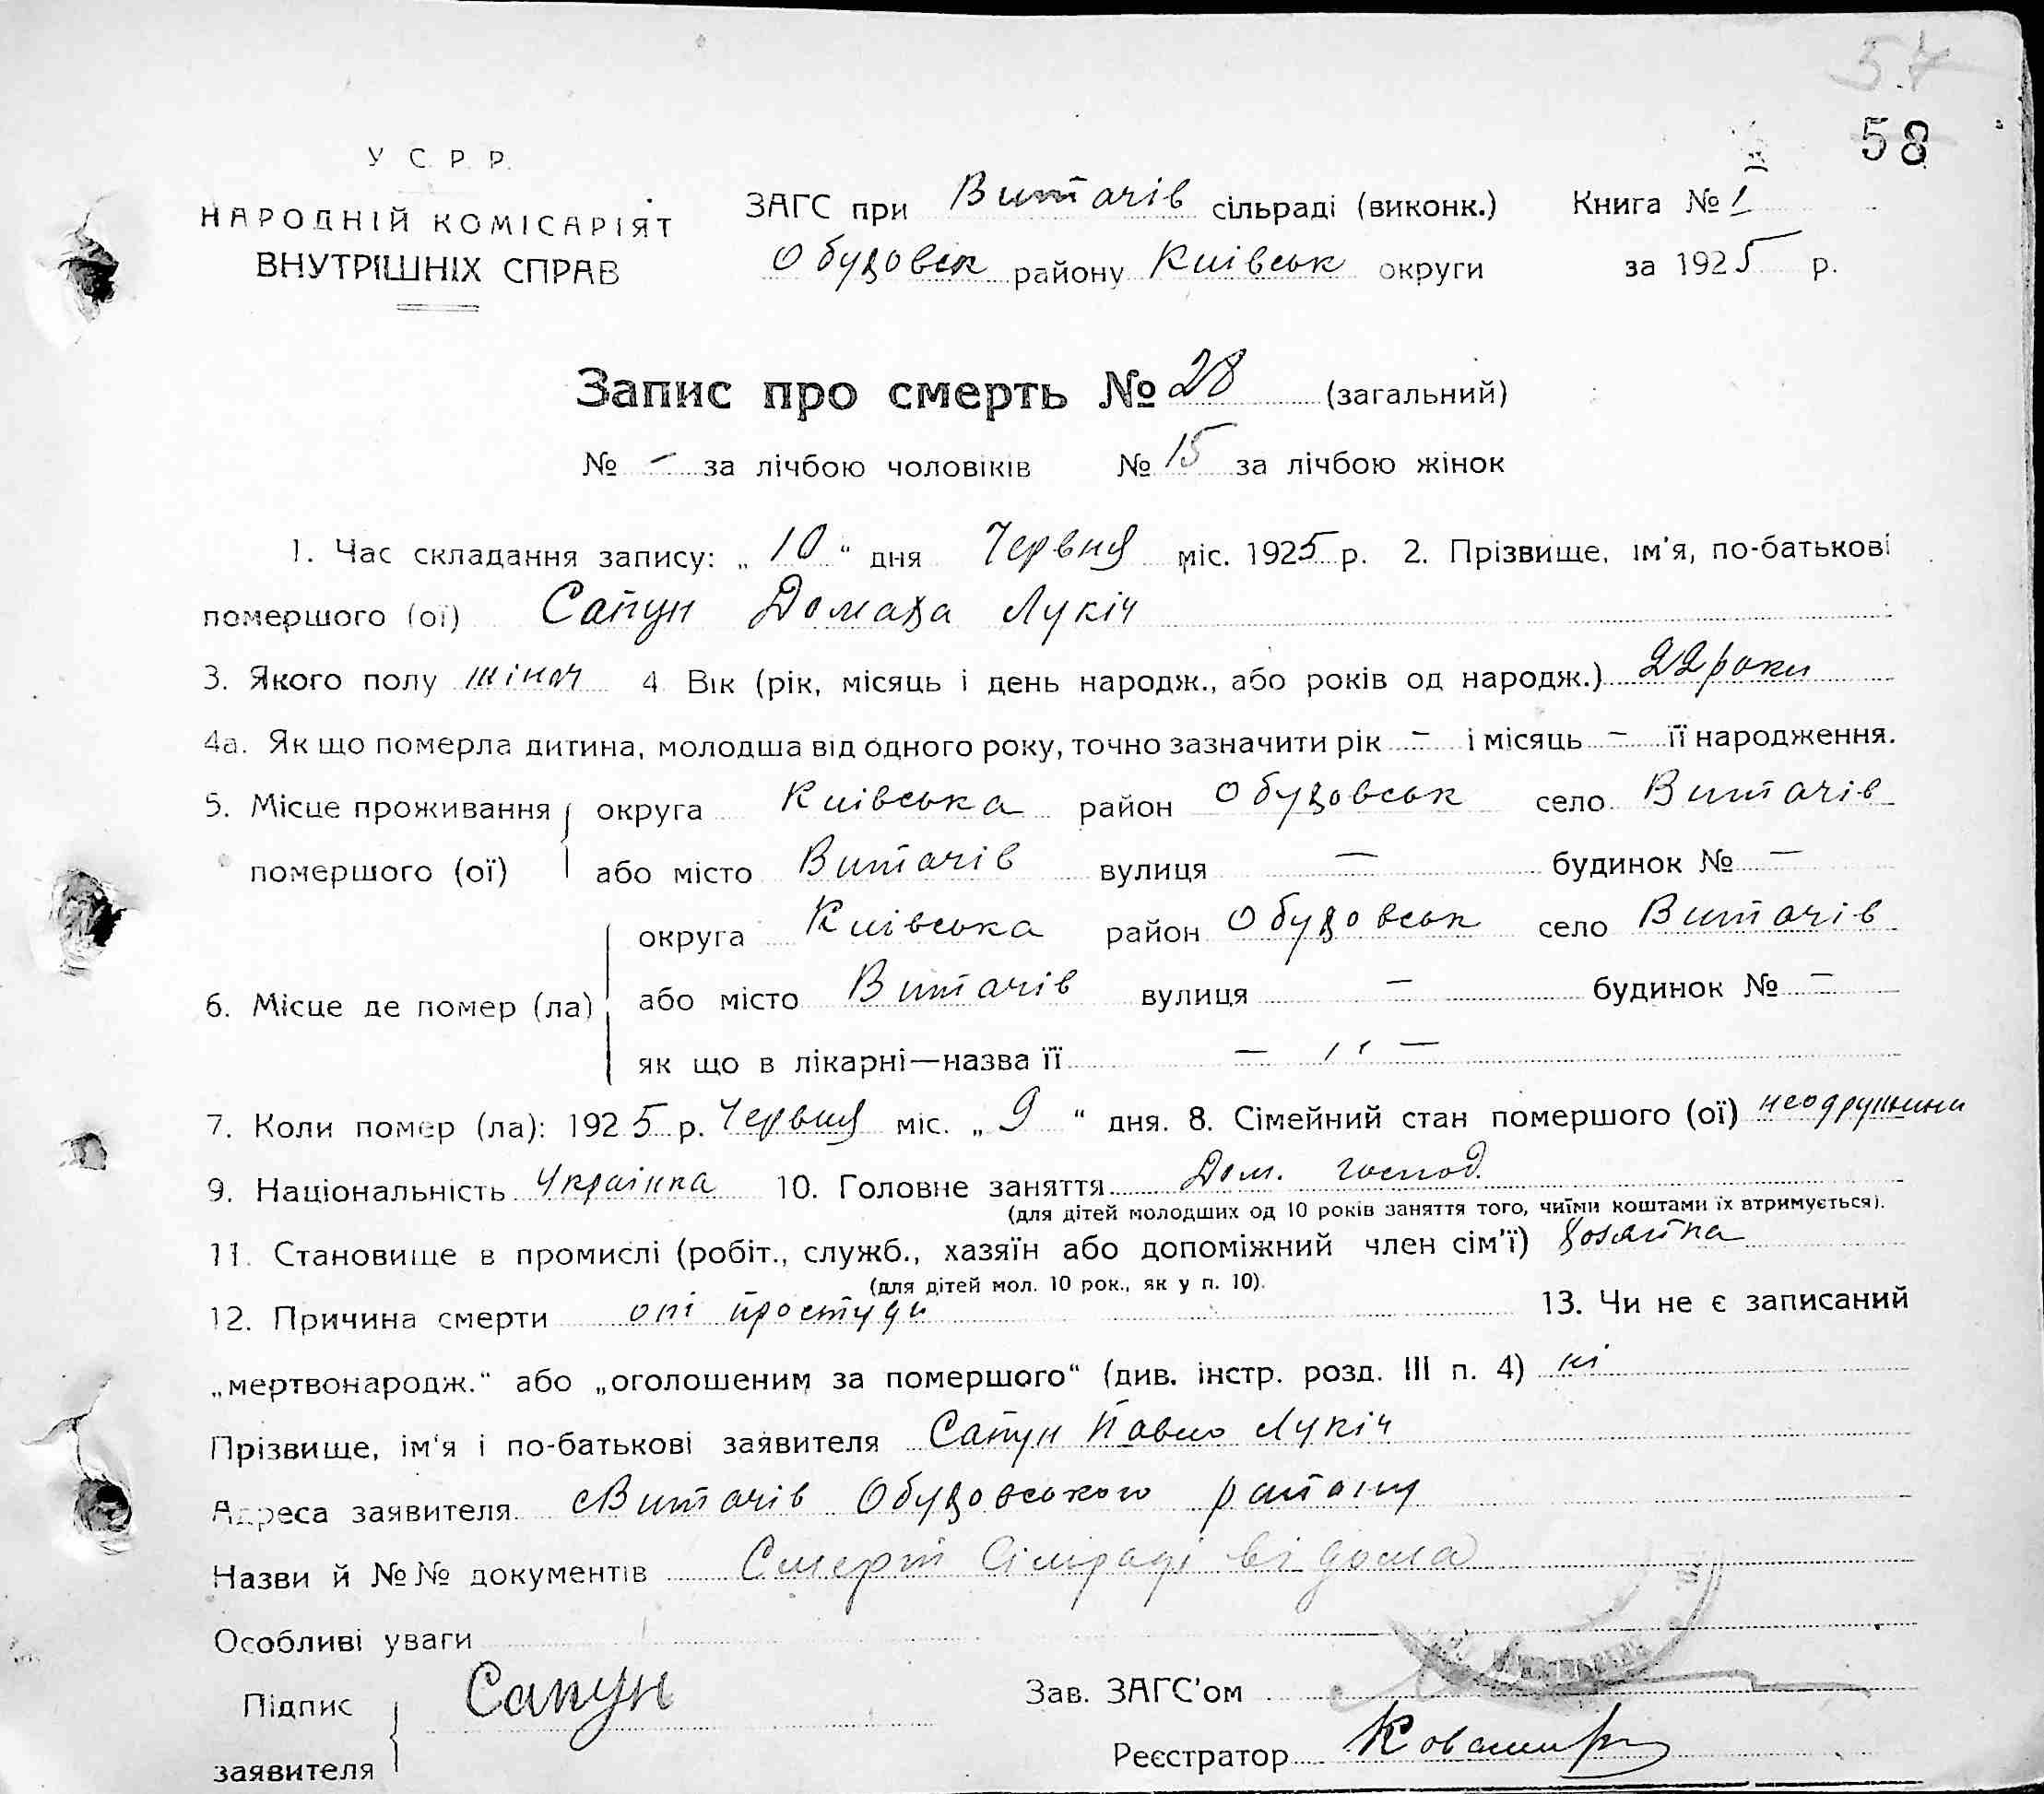 54
58
У С Р Р.
НАРОДНІЙ КОМІСАРІЯТ
ВНУТРІШНІХ СПРАВ
ЗАГС при Витачів сільраді (виконк.) Книга № 1
Обуховськ району Київськ округи за 1925 р.
Запис про смерть № 28 (загальний)
№ — за лічбою чоловіків № 15 за лічбою жінок
1. Час складання запису: „ 10 “ дня Червня міс. 1925 р. 2. Прізвище, ім'я, по-батькові
помершого (ої) Сапун Домаха Лукіч
3. Якого полу жіноч 4 Вік (рік, місяць і день народж., або років од народж.) 22 роки
4а. Як що померла дитина, молодша від одного року, точно зазначити рік — і місяць — її народження.
5. Місце проживання округа Київська район Обуховськ село Витачів
помершого (ої) або місто Витачів вулиця — будинок № —
округа Київська район Обуховськ село Витачів
6. Місце де помер (ла) або місто Витачів вулиця — будинок № —
як що в лікарні—назва її — ,, —
7. Коли помер (ла): 1925 р. Червня міс. „ 9 “ дня. 8. Сімейний стан помершого (ої)
9. Національність Українка 10. Головне заняття Дом. господ.
(для дітей молодших од 10 років заняття того, чиїми коштами їх втримується).
11. Становище в промислі (робіт., служб., хазяїн або допоміжний член сім'ї) хозяйка
(для дітей мол. 10 рок., як у п. 10).
12. Причина смерти простуди 13. Чи не є записаний
„мертвонародж.“ або „оголошеним за помершого“ (див. інстр. розд. III п. 4) ні
Прізвище, ім'я і по-батькові заявителя Сапун Павло Лукіч
Адреса заявителя Витачів Обуховського району
Назви й №№ документів Смерть Сільраді відома
Особливі уваги
Підпис Сапун Зав. ЗАГС'ом
заявителя Реєстратор